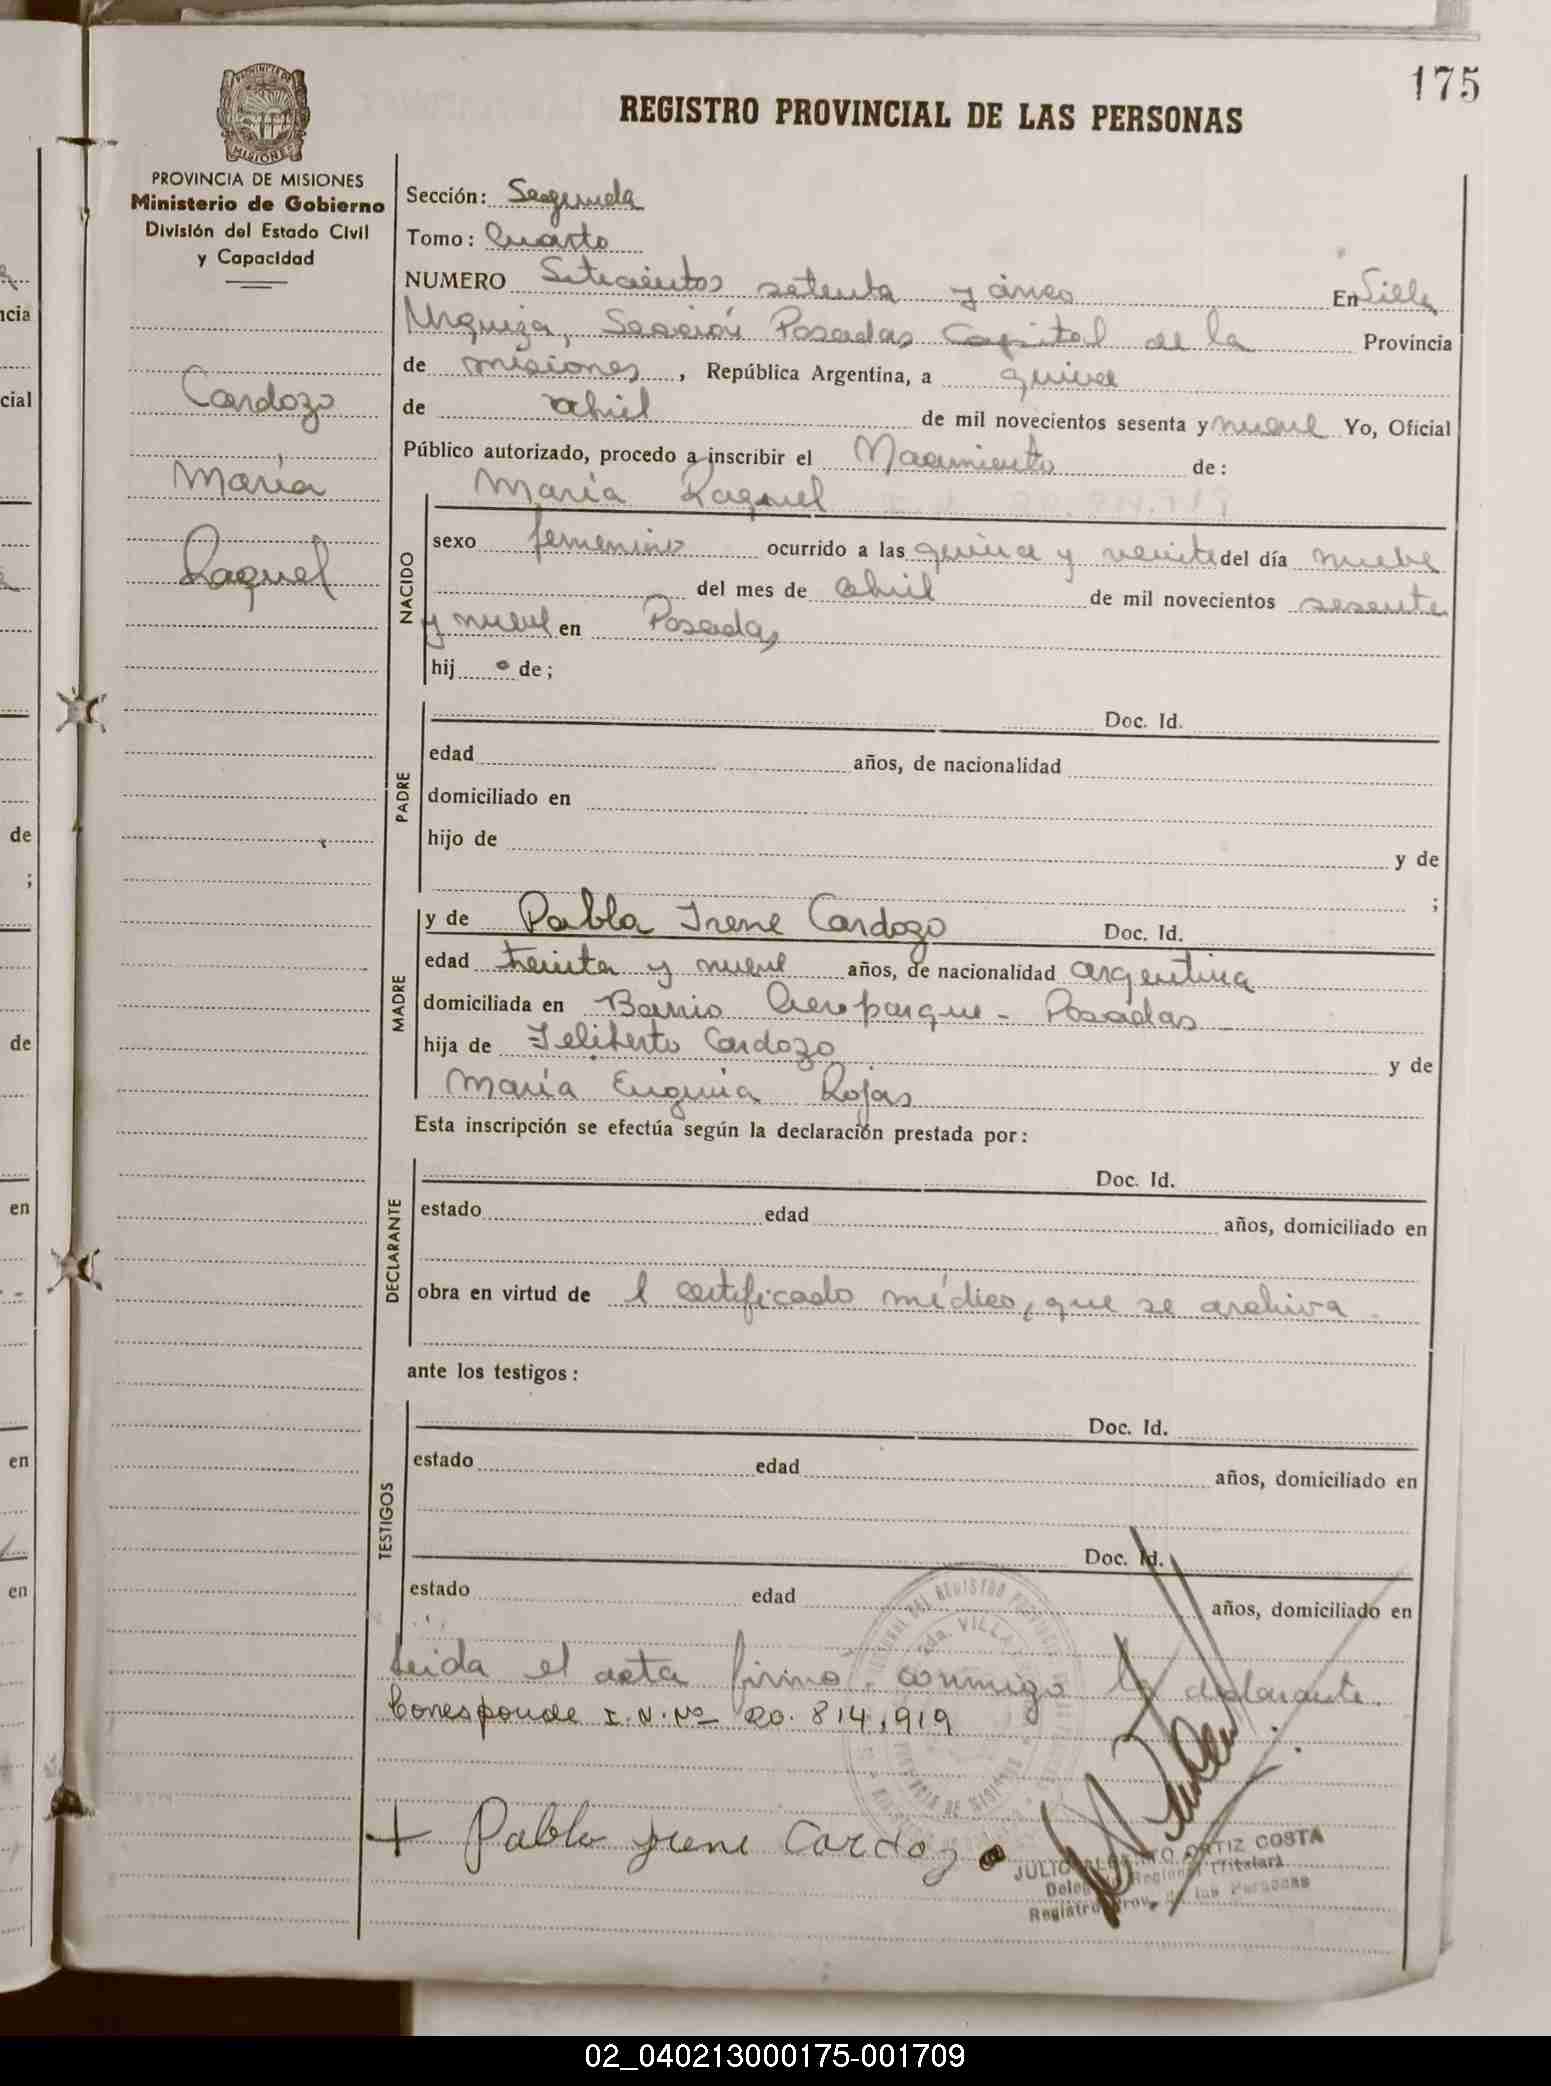 175
REGISTRO PROVINCIAL DE LAS PERSONAS
PROVINCIA DE MISIONES
Ministerio de Gobierno
División del Estado Civil
y Capacidad
Cardozo
María
Raquel
Sección: Segunda
Tomo: Cuarto
NUMERO Setecientos setenta y cinco En Villa
Urquiza, Sección Posadas Capital de la Provincia
de misiones, República Argentina, a quince
de abril de mil novecientos sesenta y nueve Yo, Oficial
Público autorizado, procedo a inscribir el Nacimiento de:
NACIDO
María Raquel
sexo femenino ocurrido a las quince y veinte del día nueve
del mes de abril de mil novecientos sesenta
y nueve en Posadas
hij a de;
PADRE
Doc. Id.
edad años, de nacionalidad
domiciliado en
hijo de y de
;
MADRE
y de Pabla Irene Cardozo Doc. Id.
edad treinta y nueve años, de nacionalidad argentina
domiciliada en Barrio Aeroparque - Posadas
hija de Feliberto Cardozo y de
María Eugenia Rojas
Esta inscripción se efectúa según la declaración prestada por:
DECLARANTE
Doc. Id.
estado edad años, domiciliado en
obra en virtud de l certificado médico, que se archiva
ante los testigos:
TESTIGOS
Doc. Id.
estado edad años, domiciliado en
Doc. Id.
estado edad años, domiciliado en
Leida el acta firma conmigo la declarante.
Corresponde I.N.Nº 20.814.919
Pabla Irene Cardozo
JULIO ORTIZ COSTA
Regional (Titular)
Registro Prov. de las Personas
02_040213000175-001709